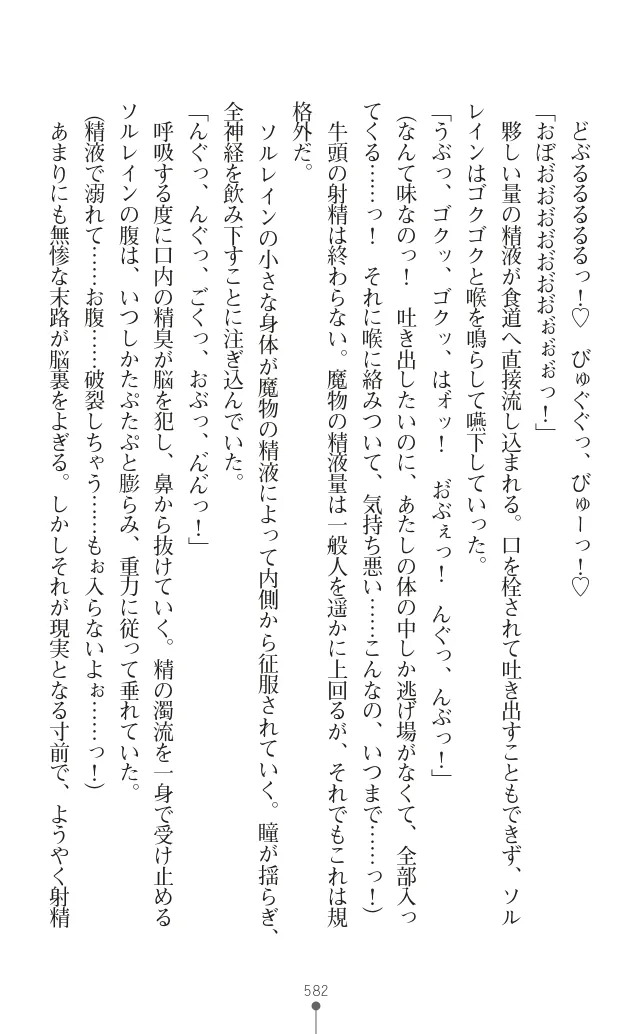 どぶるるるるるっ！♡　びゅぐぐっ、びゅーっ！♡
「おぼお゙お゙お゙お゙お゙お゙お゙ぉ゙ぉ゙ぉ゙っ！」
夥しい量の精液が食道へ直接流し込まれる。口を栓されて吐き出すこともできず、ソル
レインはゴクゴクと喉を鳴らして嚥下していった。
「うぶっ、ゴクッ、ゴクッ、はォ゙ッ！　お゙ぶぇっ！　んぐっ、んぶっ！」
（なんて味なのっ！　吐き出したいのに、あたしの体の中しか逃げ場がなくて、全部入っ
てくる……っ！　それに喉に絡みついて、気持ち悪い……こんなの、いつまで……っ！）
牛頭の射精は終わらない。魔物の精液量は一般人を遥かに上回るが、それでもこれは規
格外だ。
ソルレインの小さな身体が魔物の精液によって内側から征服されていく。瞳が揺らぎ、
全神経を飲み下すことに注ぎ込んでいた。
「んぐっ、んぐっ、ごくっ、おぶっ、ん゙ん゙っ！」
呼吸する度に口内の精臭が脳を犯し、鼻から抜けていく。精の濁流を一身で受け止める
ソルレインの腹は、いつしかたぷたぷと膨らみ、重力に従って垂れていた。
（精液で溺れて……お腹……破裂しちゃう……もぉ入らないよぉ……っ！）
あまりにも無惨な末路が脳裏をよぎる。しかしそれが現実となる寸前で、ようやく射精
582